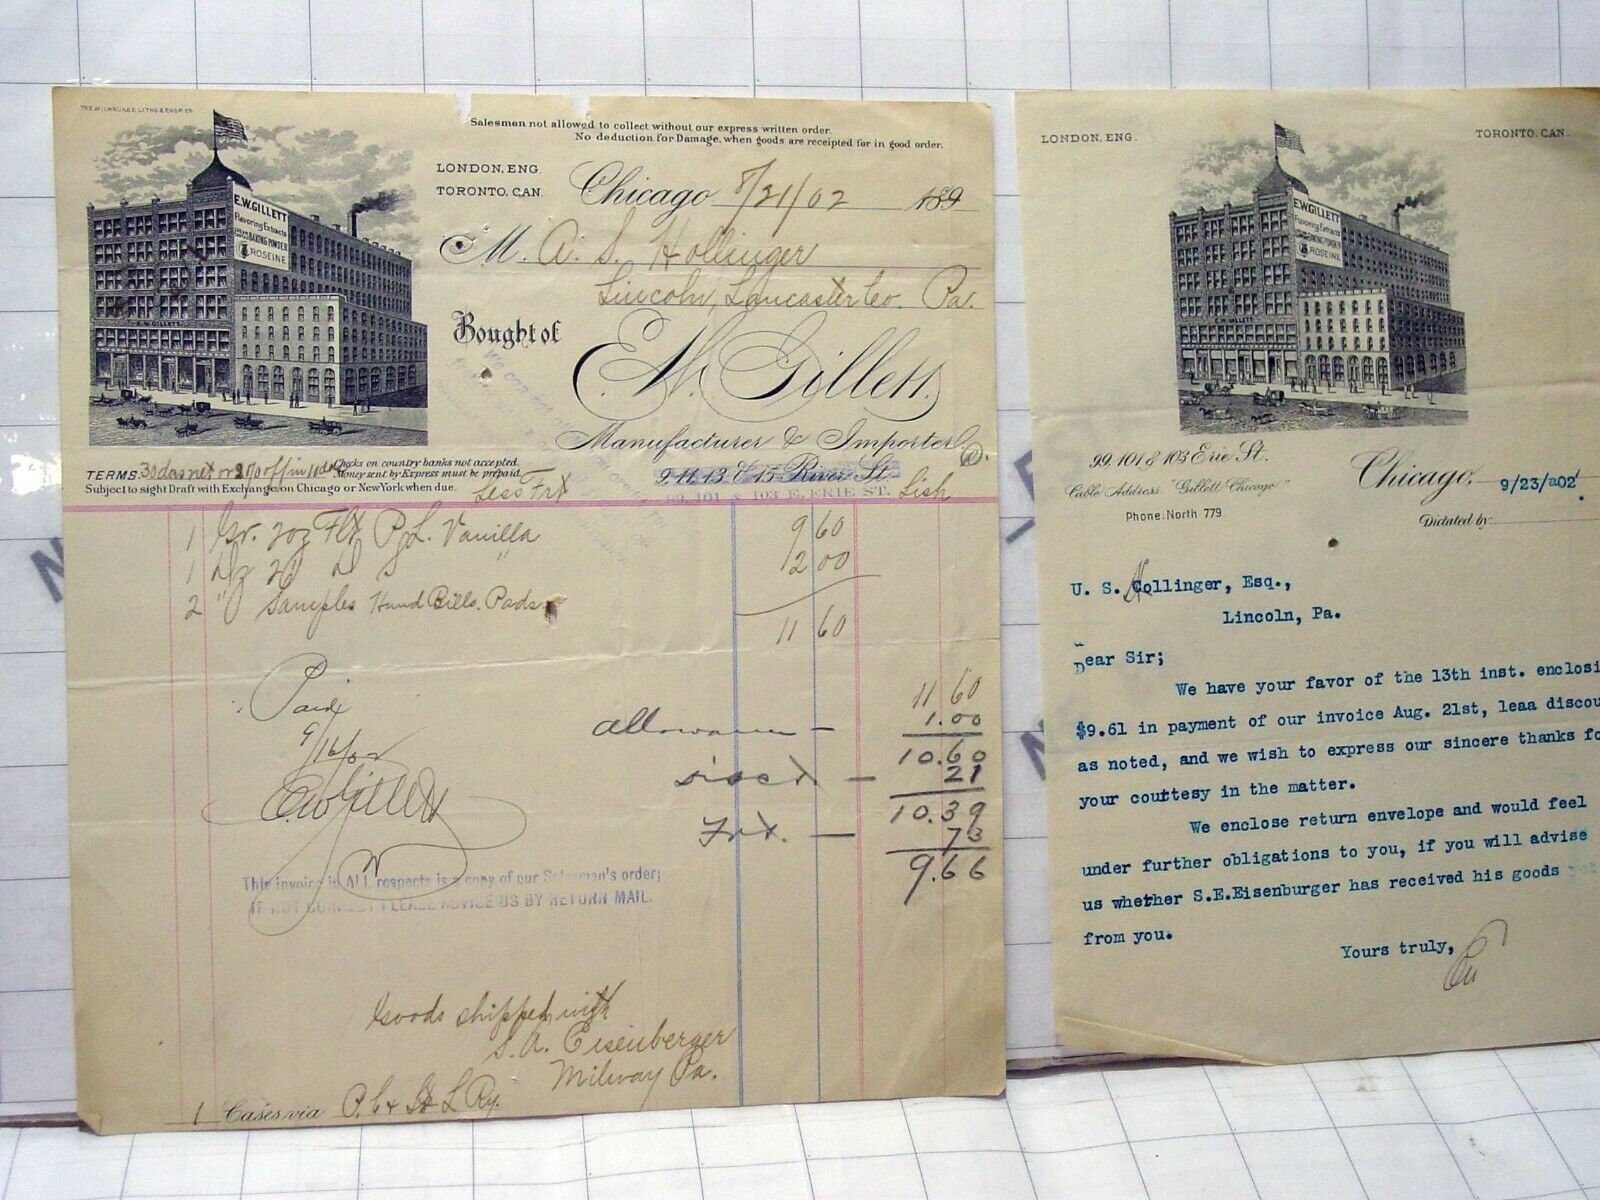 THE MILWAUKEE LITHO & ENGR. CO.
Salesmen not allowed to collect without our express written order.
No deduction for Damage, when goods are receipted for in good order.
LONDON, ENG.
TORONTO, CAN.
Chicago 8/21/02 189
E.W.GILLETT
Flavoring Extracts
BAKING POWDER
ROSEINE
E.W. GILLETT
M. A. S. Hollinger
Lincoln, Lancaster Co. Pa.
Bought of
E.W. Gillett.
Manufacturer & Importer
9-11-13 & 15 River St.
99, 101 & 103 E. ERIE ST.
TERMS 30 days net or 2% off in 10 days
Checks on country banks not accepted.
Money sent by Express must be prepaid.
Subject to sight Draft with Exchange on Chicago or New York when due.
Less Frt
Lish
1 Gr. 2oz Flt P.L. Vanilla 9 60
1 Dz 2" D S " 2 00
2 " Samples Hand Bills. Pads
11 60
Paid
9/16/02
E.W. Gillett
11 60
Allowance - 1.00
10.60
Disct - 21
10.39
Frt. - 73
9.66
This invoice in ALL respects is a copy of our Salesman's order;
IF NOT CORRECT PLEASE ADVISE US BY RETURN MAIL.
Goods shipped with
S. A. Eisenberger
Milway Pa.
1 Cases via P. Ft. W L Ry.
LONDON, ENG.
TORONTO, CAN.
E.W.GILLETT
Flavoring Extracts
BAKING POWDER
ROSEINE
E.W. GILLETT
99, 101 & 103 Erie St.
Cable Address "Gillett Chicago"
Phone, North 779
Chicago, 9/23/a02'
Dictated by
U. S. Hollinger, Esq.,
Lincoln, Pa.
Dear Sir;
We have your favor of the 13th inst. enclosi
$9.61 in payment of our invoice Aug. 21st, leaa discou
as noted, and we wish to express our sincere thanks fo
your courtesy in the matter.
We enclose return envelope and would feel
under further obligations to you, if you will advise
us whether S.E.Eisenburger has received his goods
from you.
Yours truly,